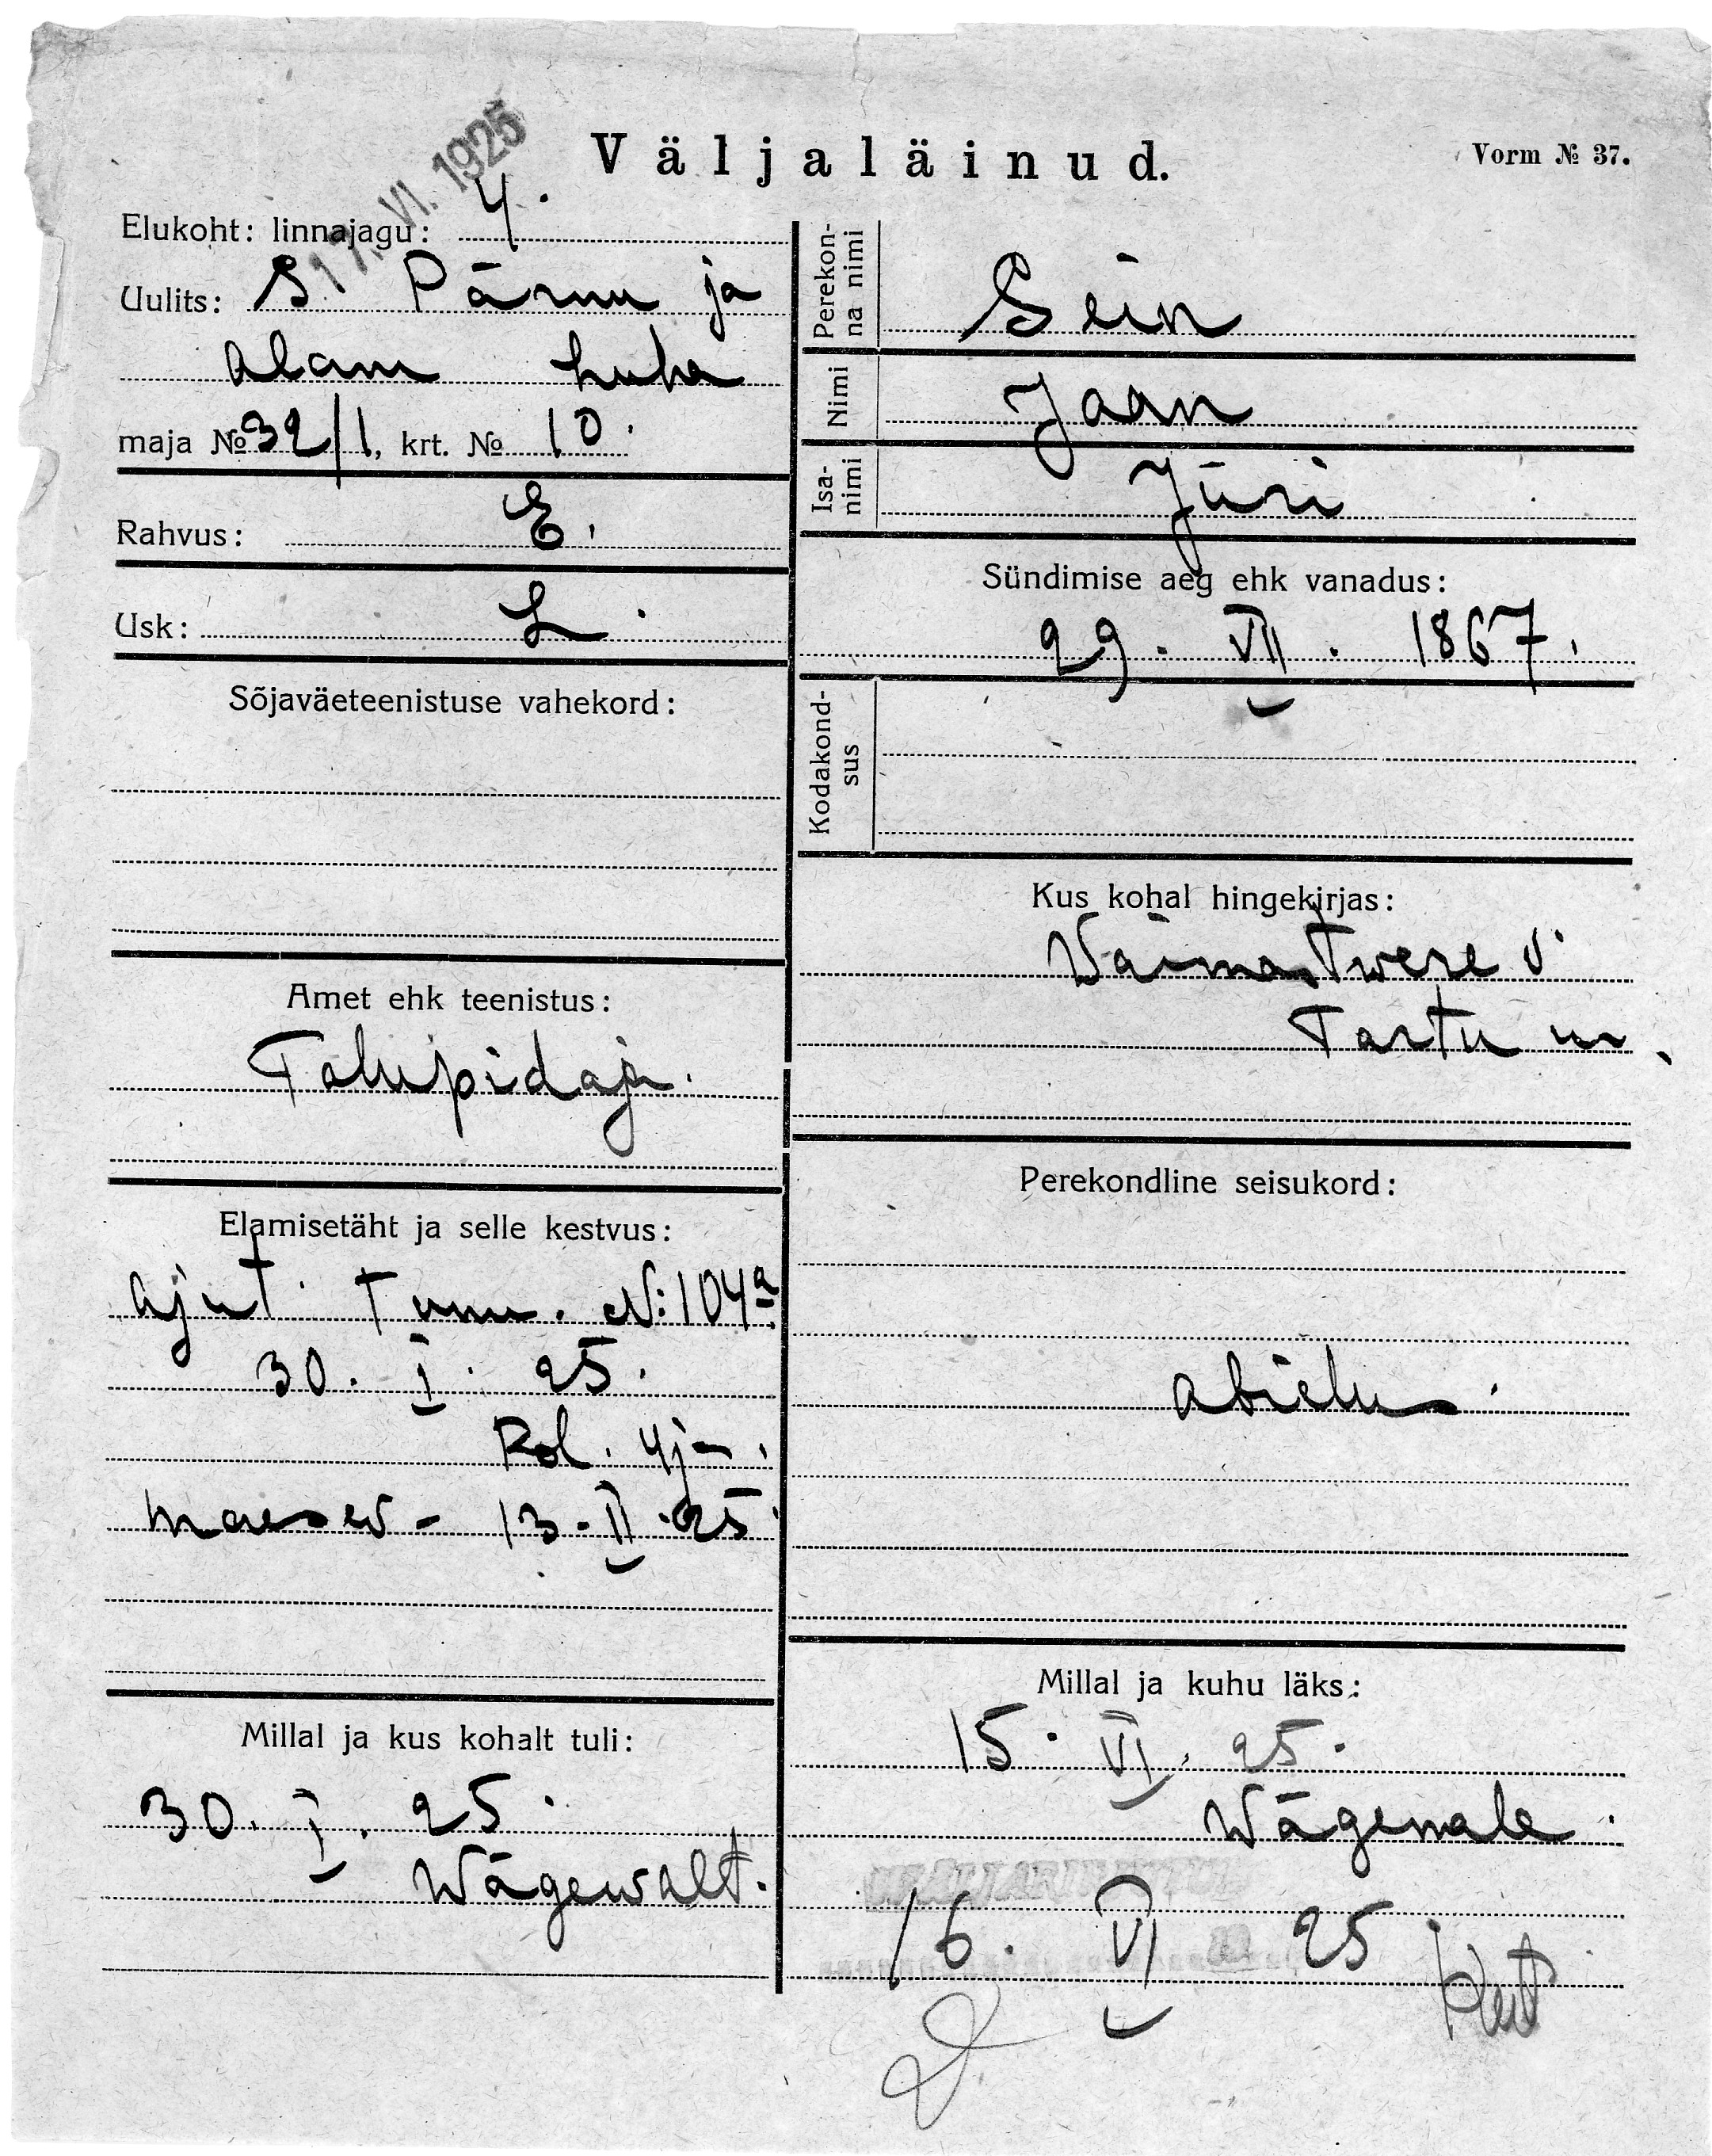 Väljaläinud.
Vorm № 37.
17. VI. 1925
Elukoht: linnajagu: 4.
Uulits: S. Pärnu ja
alam Juha
maja № 32/1, krt. № 10.
Rahvus: E.
Usk: L.
Sõjaväeteenistuse vahekord:
Amet ehk teenistus:
Talupidaja.
Elamisetäht ja selle kestvus:
ajut. Tunn. №: 104a
30. I. 25.
Pol. 4 jsk.
13. II. 25.
Millal ja kus kohalt tuli:
30. I. 25.
Wägewalt.
Perekonna nimi
Sein
Nimi
Jaan
Isanimi
Jüri
Sündimise aeg ehk vanadus:
29. VII. 1867.
Kodakondsus
Kus kohal hingekirjas:
Vaimastwere v.
Tartu m.
Perekondline seisukord:
abielus.
Millal ja kuhu läks:
15. VI. 25.
Wägewale.
16. VI 25.